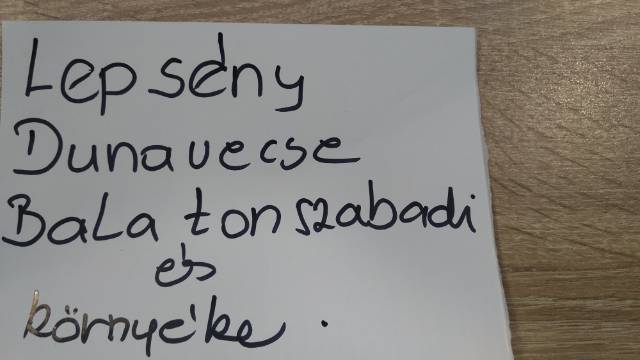 Lepsény
Dunavecse
Balatonszabadi
és
környéke.